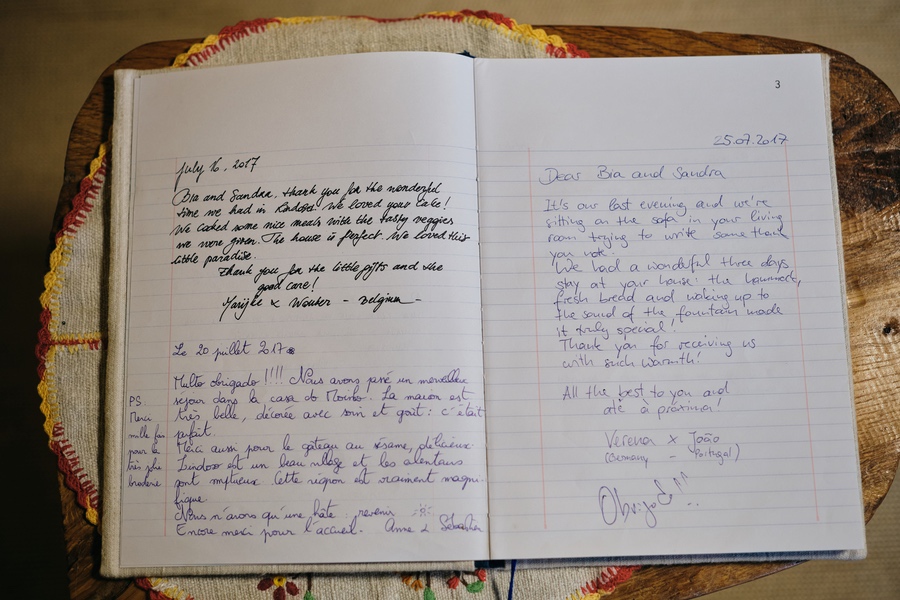 July 16, 2017
Bia and Sandra, thank you for the wonderful
time we had in Lindoso. We loved your cake!
We cooked some nice meals with the tasty veggies
we were given. The house is perfect. We loved this
little paradise.
Thank you for the little gifts and the
good care!
Marijke & Wouter - Belgium -
Le 20 juillet 2017
Multo obrigado !!!! Nous avons passé un merveilleux
sejour dans la casa do Moinho. La maison est
très belle, décorée avec soin et goût : c'était
parfait.
Merci aussi pour le gâteau au sésame, délicieux.
Lindoso est un beau village et les alentours
sont somptueux. Cette région est vraiment magni-
fique.
Nous n'avons qu'une hâte : revenir
Encore merci pour l'accueil. Anne & Sébastien
PS:
Merci
mille fois
pour la
très jolie
broderie
3
25.07.2017
Dear Bia and Sandra
It's our last evening and we're
sitting on the sofa in your living
room trying to write some thank
you note.
We had a wonderful three days
stay at your house: the hammock,
fresh bread and waking up to
the sound of the fountain made
it truly special!
Thank you for receiving us
with such warmth!
All the best to you and
até à próxima!
Verena & João
(Germany - Portugal)